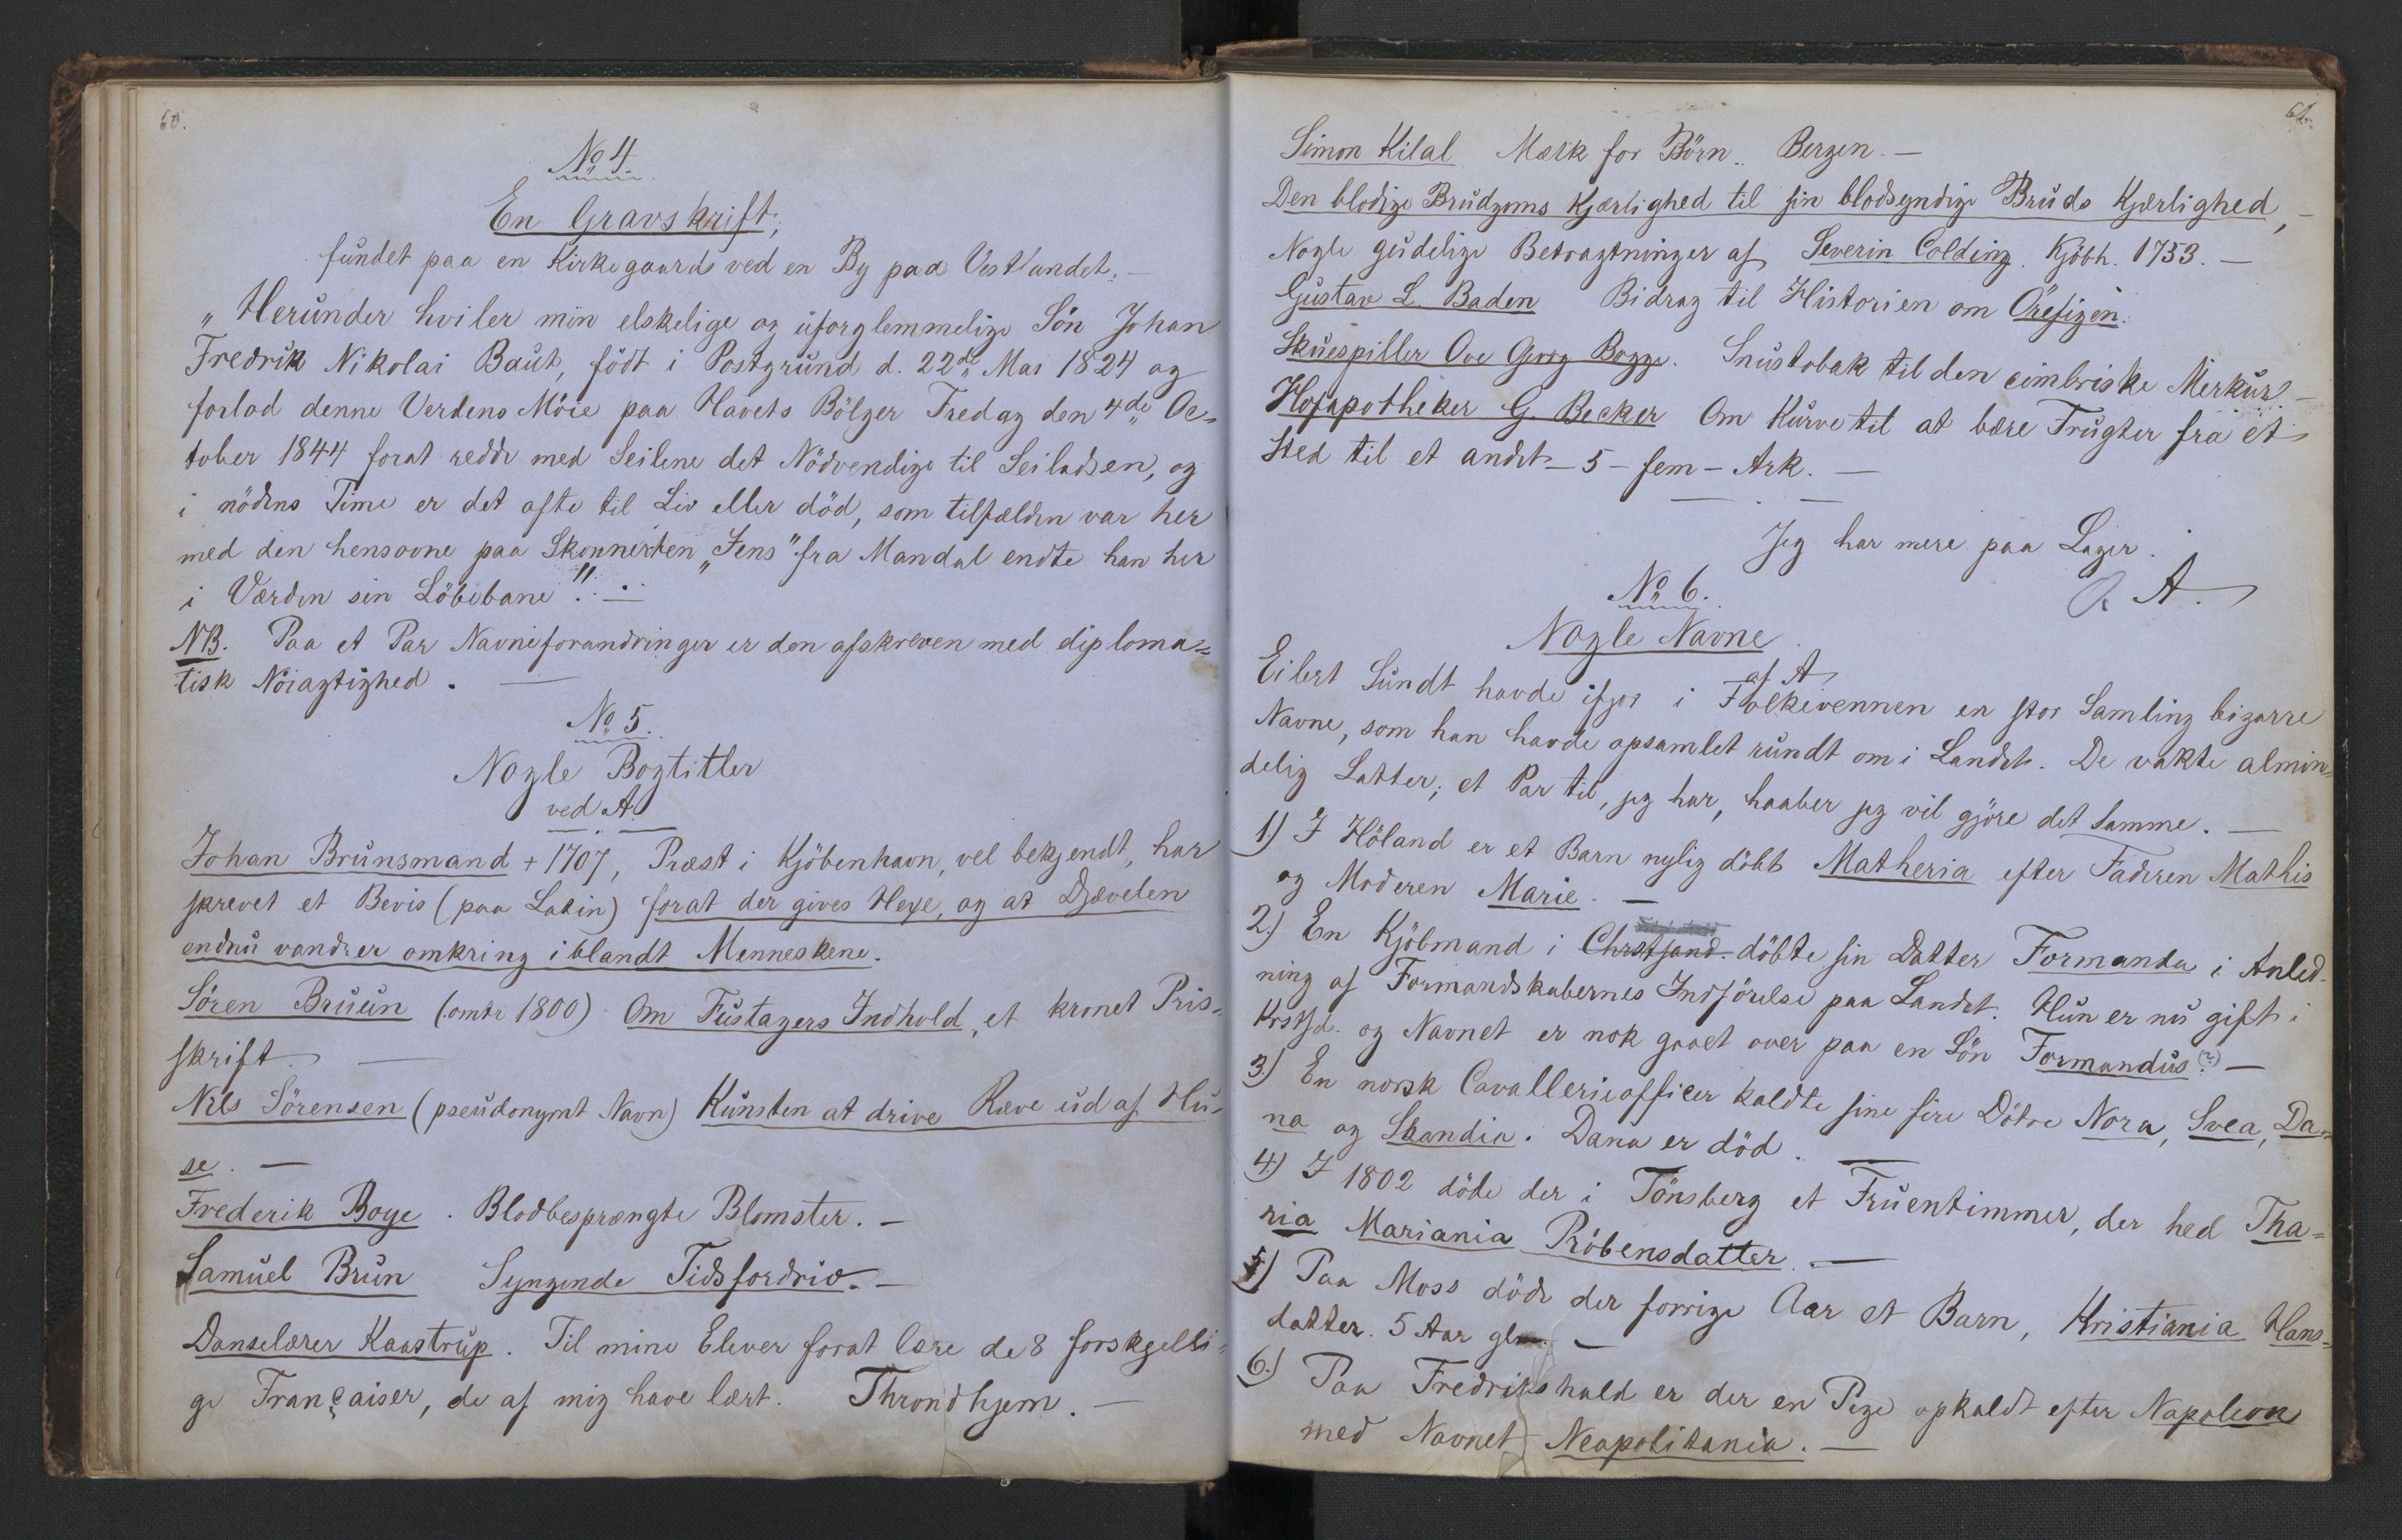 60.
No 4.
En Gravskrift;
fundet paa en Kirkegaard ved en By paa Vestlandet. —
„Herunder hviler min elskelige og uforglemmelige Sön Johan
Fredrik Nikolai Baut, födt i Postgrund d. 22de Mai 1824 og
forlod denne Verdens Möie paa Havets Bölger Fredag den 4de Oc-
tober 1844 forat redde med Seilene det Nödvendige til Seiladsen, og
i nödens Time er det ofte til Liv eller död, som tilfælden var her
med den hensovne paa Skonnerten „Jens" fra Mandal endte han her
i Værden sin Löbebane"! —
NB. Paa et Par Navneforandringer er den afskreven med diploma=
tisk Nöiagtighed. —
No 5.
Nogle Bogtitler
ved A.
Johan Brunsmand + 1707, Præst i Kjöbenhavn, vel bekjendt, har
skrevet et Bevis (paa Latin) forat der gives Hexe, og at Djævelen
endnu vandrer omkring iblandt Menneskene.
Sören Bruun (omtr 1800) Om Fustagers Indhold, et kronet Pris-
skrift. —
Nils Sörensen (pseudonymt Navn) Kunsten at drive Ræve ud af Hu-
se. —
Frederik Boye. Blodbesprængte Blomster. —
Samuel Brun Syngende Tidsfordriv. —
Danselærer Kaastrup. Til mine Elever forat lære de 8 forskjelli-
ge Françaiser, de af mig have lært. Throndhjem. —
61.
Simon Kilal Mælk for Börn. Bergen. —
Den blodige Brudgoms Kjærlighed til sin blodsyndige Bruds Kjærlighed, —
Nogle gudelige Betragtninger af Severin Colding. Kjöbh. 1753. —
Gustav L. Baden Bidrag til Historien om Örefigen.
Skuespiller Ove Georg Bogge. Snustobak til den cimbriske Merkur. —
Hofapotheker G. Becker Om Kurve til at bære Frugter fra et
Sted til et andet — 5 — fem — Ark. —
Jeg har mere paa Lager.
A.
No 6.
Nogle Navne
af A
Eilert Sundt havde ifjor i Folkevennen en stor Samling bizarre
Navne, som han havde opsamlet rundt om i Landet. De vakte almin=
delig Latter; et Par til, jeg har, haaber jeg vil gjöre det samme. —
1) I Höland er et Barn nylig döbt Matheria efter Faderen Mathis
og Moderen Marie. —
2.) En Kjöbmand i Christsand. döbte sin Datter Formanda i Anled-
ning af Formandskabernes Indförelse paa Landet. Hun er nu gift i
Krstsd. og Navnet er nok gaaet over paa en Sön Formandus (?) —
3.) En norsk Cavallerieofficer kaldte sine fire Dötre Nora, Svea, Da=
na og Skandia. Dana er död. —
4.) I 1802 döde der i Tönsberg et Fruentimmer, der hed Tha=
ria Mariania Röbensdatter. —
5.) Paa Moss döde der forrige Aar et Barn, Kristiania Hans=
datter. 5 Aar gl. —
6.) Paa Fredrikshald er der en Pige opkaldt efter Napoleon
med Navnet Neapolitania. —